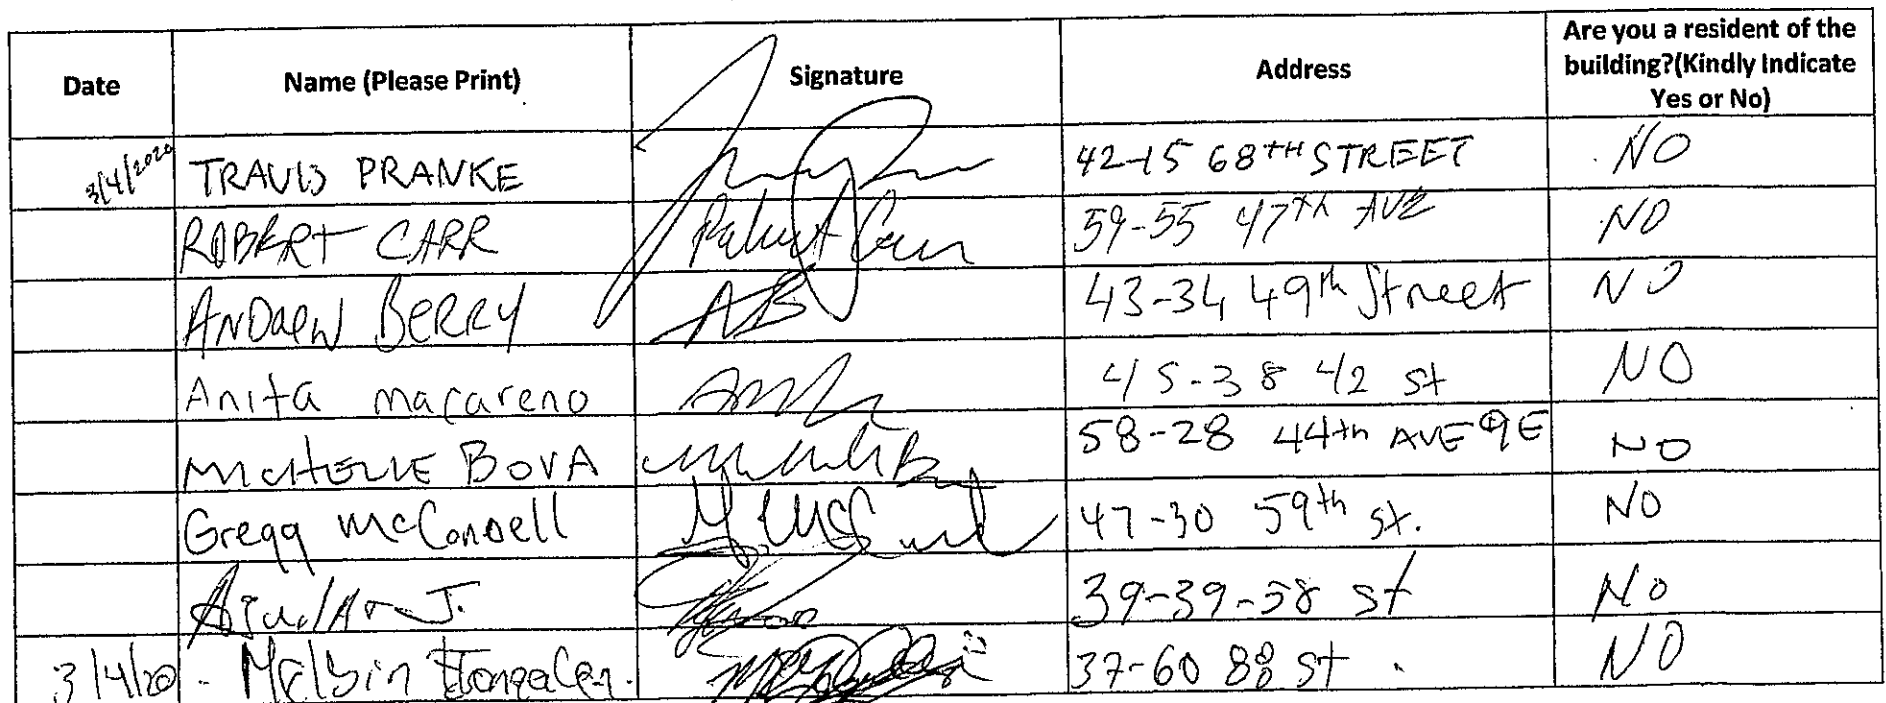 Date Name (Please Print) Signature Address Are you a resident of the
building?(Kindly Indicate
Yes or No)
3/4/2020 TRAVIS PRANKE 42-15 68TH STREET NO
ROBERT CARR Robert Carr 59-55 47th AVE NO
ANDREW BERRY AB 43-34 49th Street NO
Anita macareno 45-38 42 St NO
MICHELLE BOVA 58-28 44th AVE 9E NO
Gregg McConnell 47-30 59th St. NO
J. 39-39-58 St No
3/4/20 37-60 88 St. NO